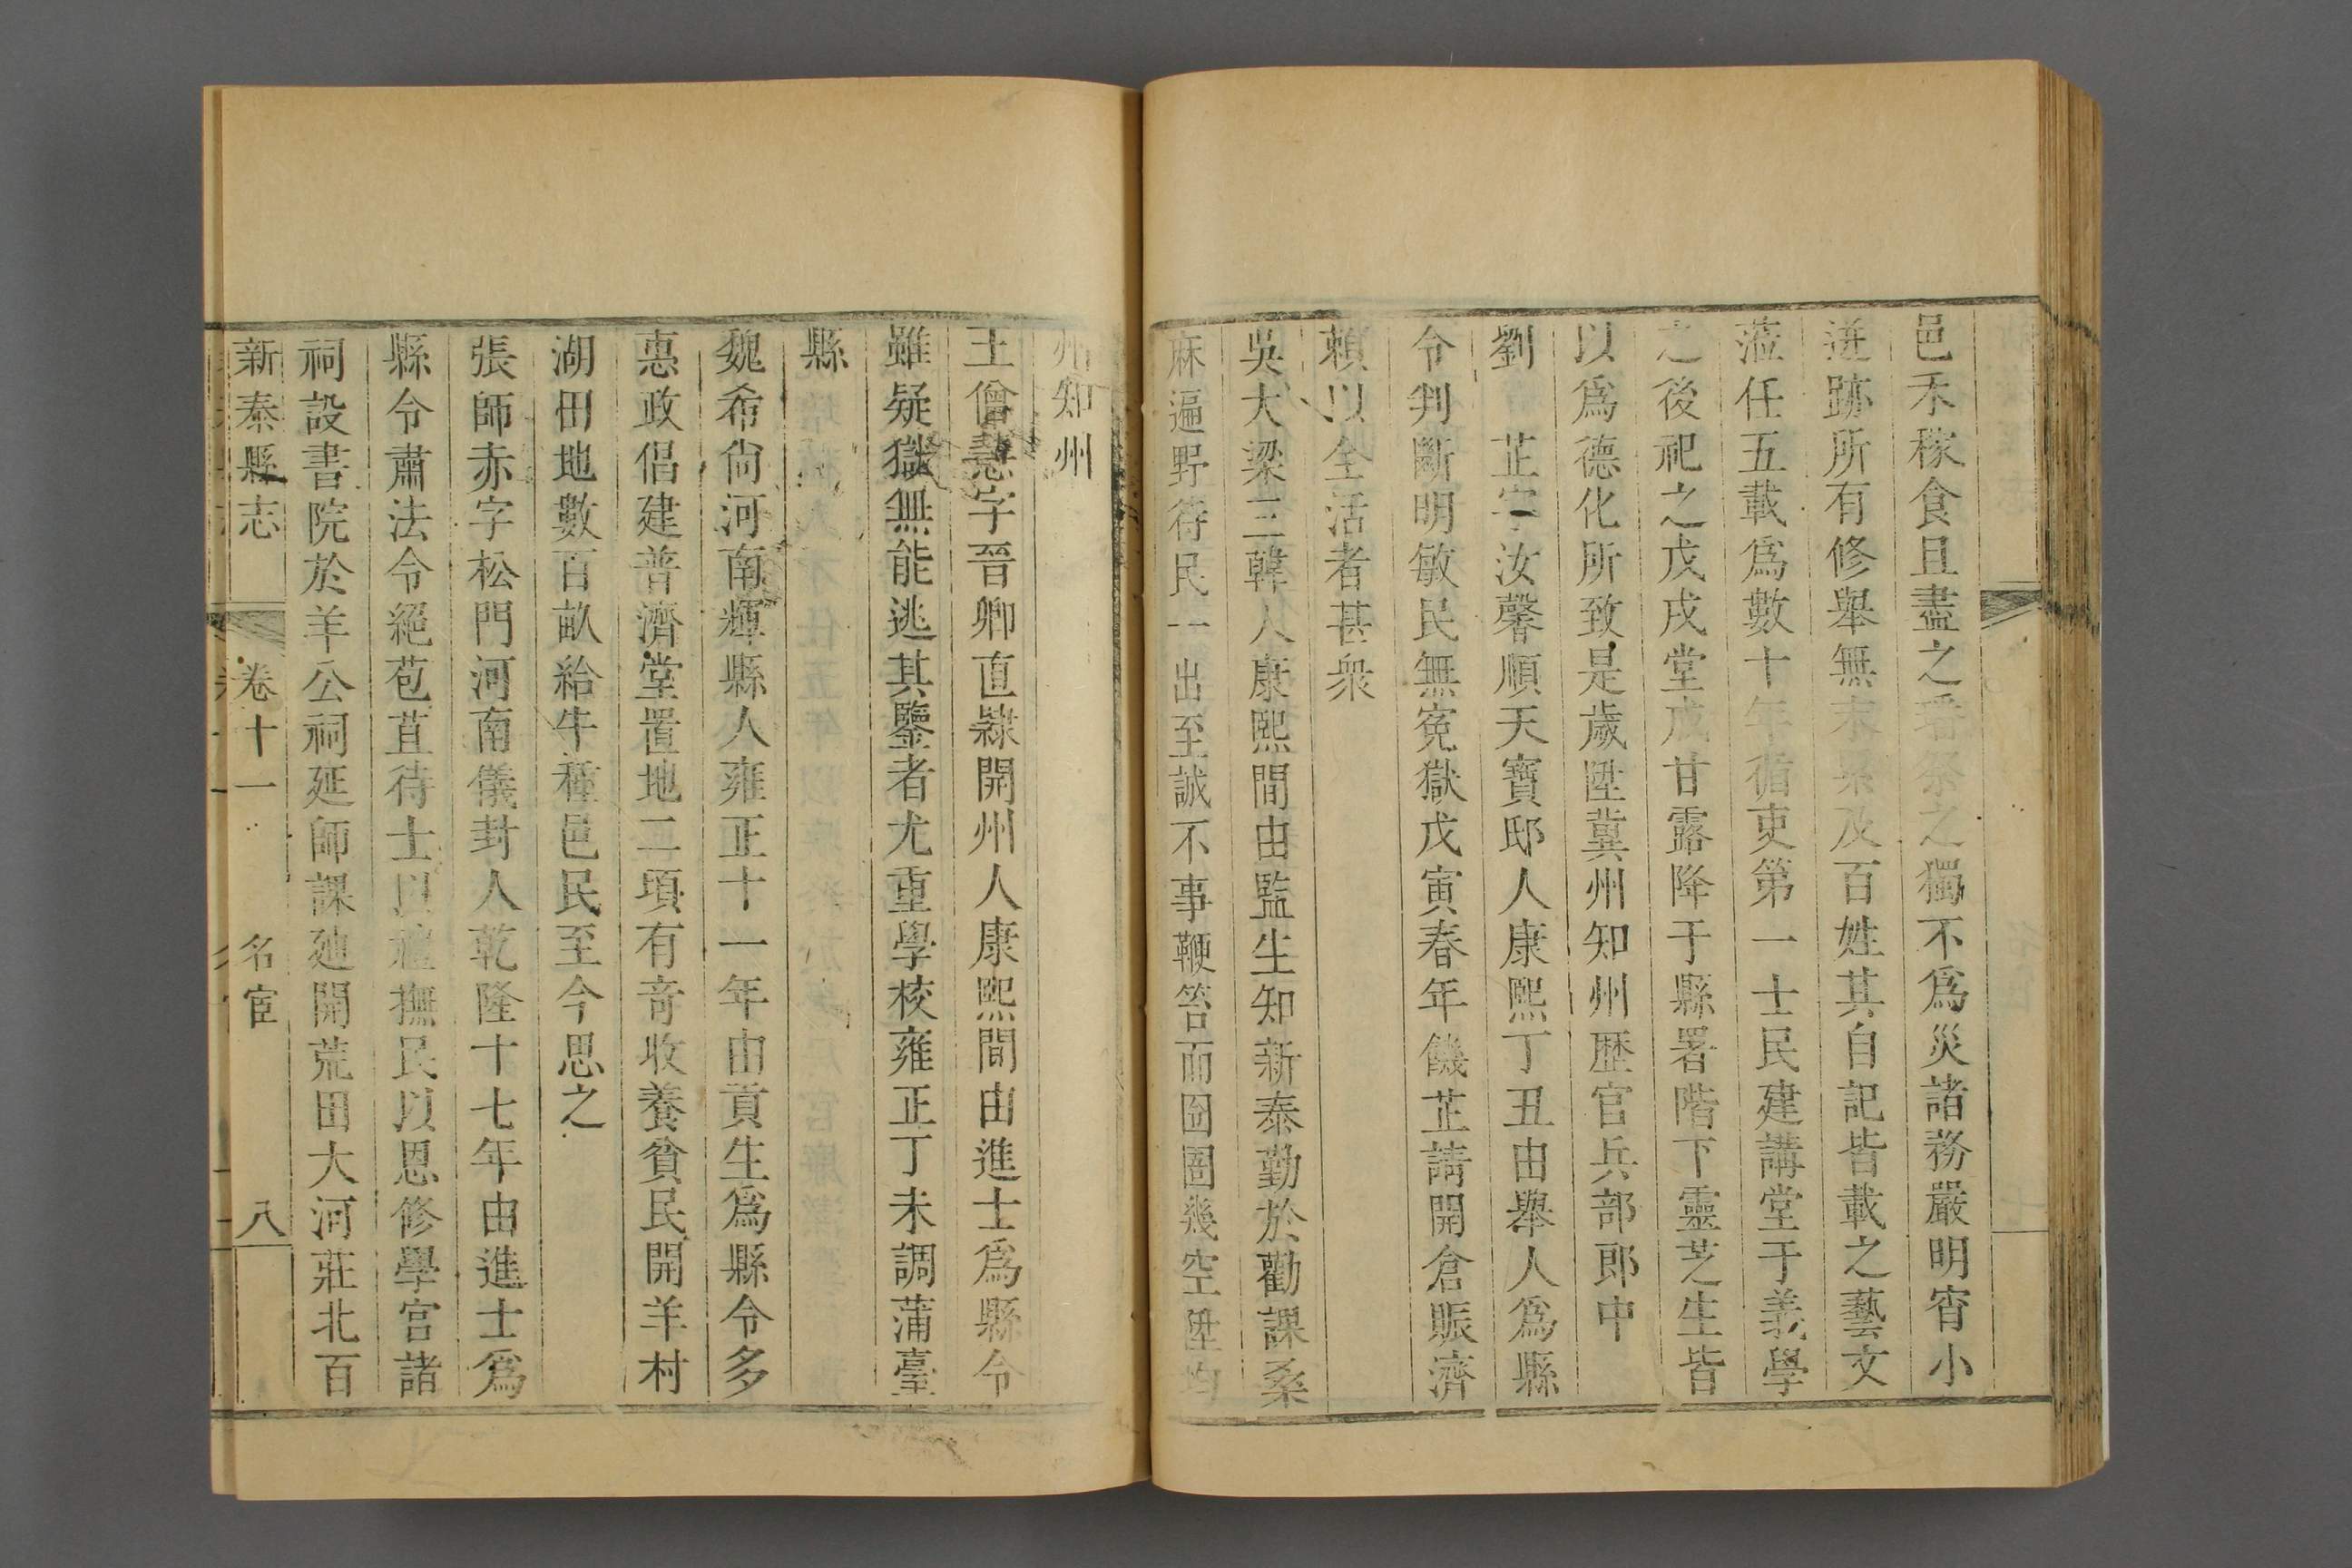 邑禾稼食且盡之番祭之獨不爲災諸務嚴明宵小
迸跡所有修舉無末累及百姓其自記皆載之藝文
蒞任五載爲數十年循吏第一士民建講堂于義學
之後祀之戊戌堂成甘露降于縣署階下靈芝生皆
以爲德化所致是歲陞冀州知州歴官兵部郎中
劉芷字汝馨順天寶邸人康熙丁丑由舉人爲縣
令判斷明敏民無寃獄戊寅春年饑芷請開倉賑濟
賴以全活者甚衆
吳大梁三韓人康熙間由監生知新泰勤於勸課桑
麻遍野待民一出至誠不事鞭笞而囹圄幾空陞均
州知州
王僧慧字晉卿直隸開州人康熙間由進士爲縣令
雖疑獄無能逃其鑒者尤重學校雍正丁未調蒲臺
縣
魏希尙河南輝縣人雍正十一年由貢生爲縣令多
惠政倡建普濟堂置地二項有奇收養貧民開羊村
湖田地數百畝給牛種邑民至今思之
張師赤字松門河南儀封人乾隆十七年由進士爲
縣令肅法令絕苞苴待士以禮撫民以恩修學宮諸
祠設書院於羊公祠延師課廸開荒田大河莊北百
新泰縣志 卷十一 名宦 八